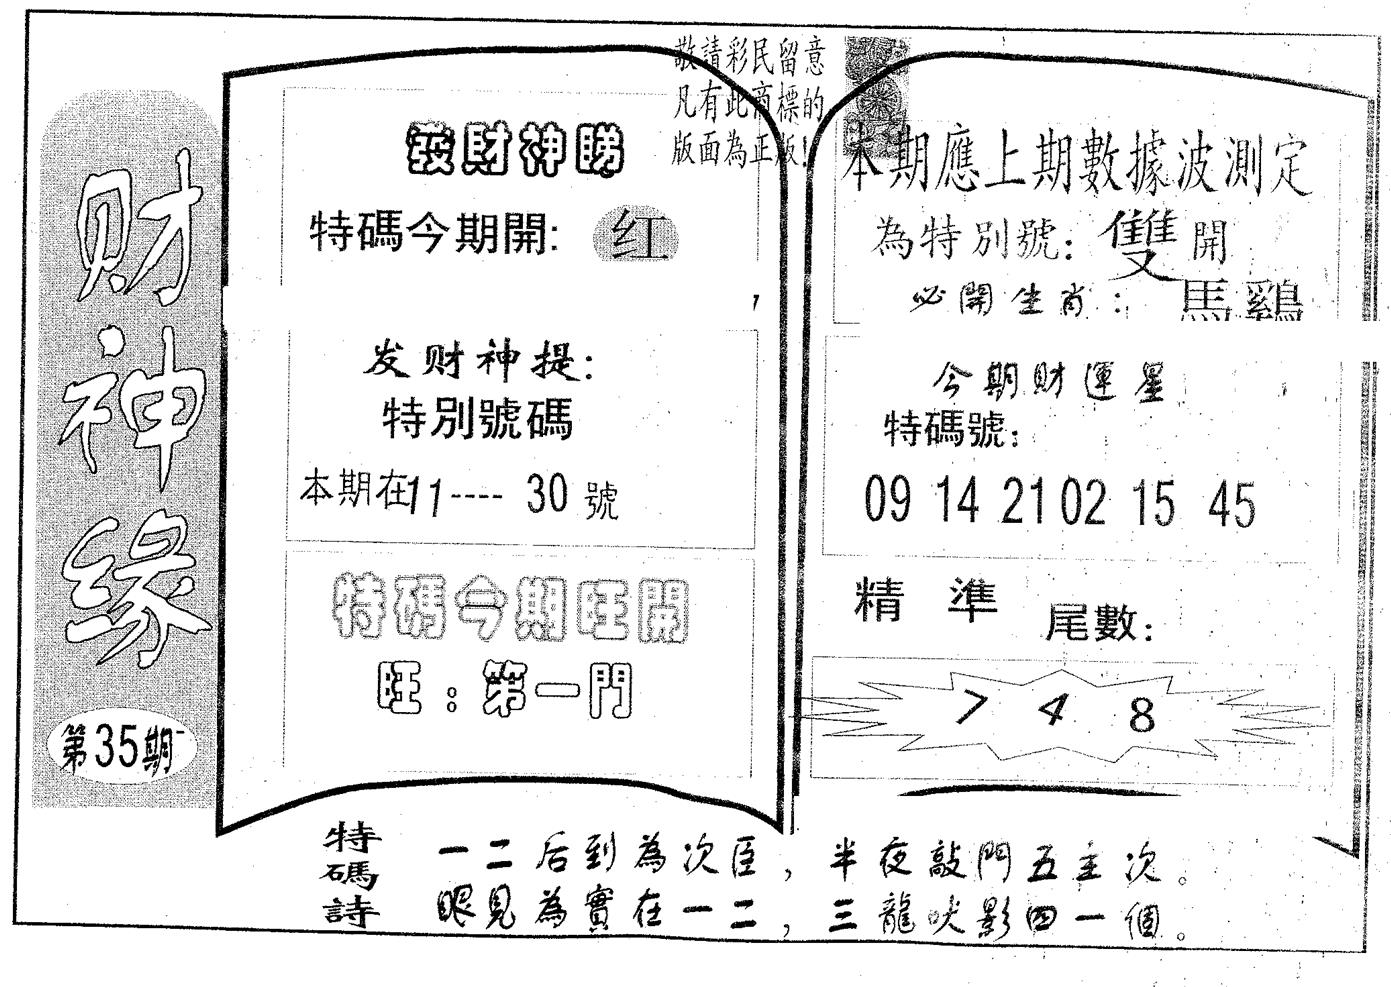 财神缘
第35期
敬請彩民留意
凡有此商標的
版面為正版!
發財神睇
特碼今期開: 红
发财神提:
特別號碼
本期在11---- 30 號
特碼今期旺開
旺:第一門
本期應上期數據波測定
為特別號: 雙 開
必開生肖: 馬鷄
今期財運星
特碼號:
09 14 21 02 15 45
精 準 尾數:
7 4 8
特碼詩
一二后到為次臣,半夜敲門五主次。
眼見為實在一二,三龍吠影四一個。